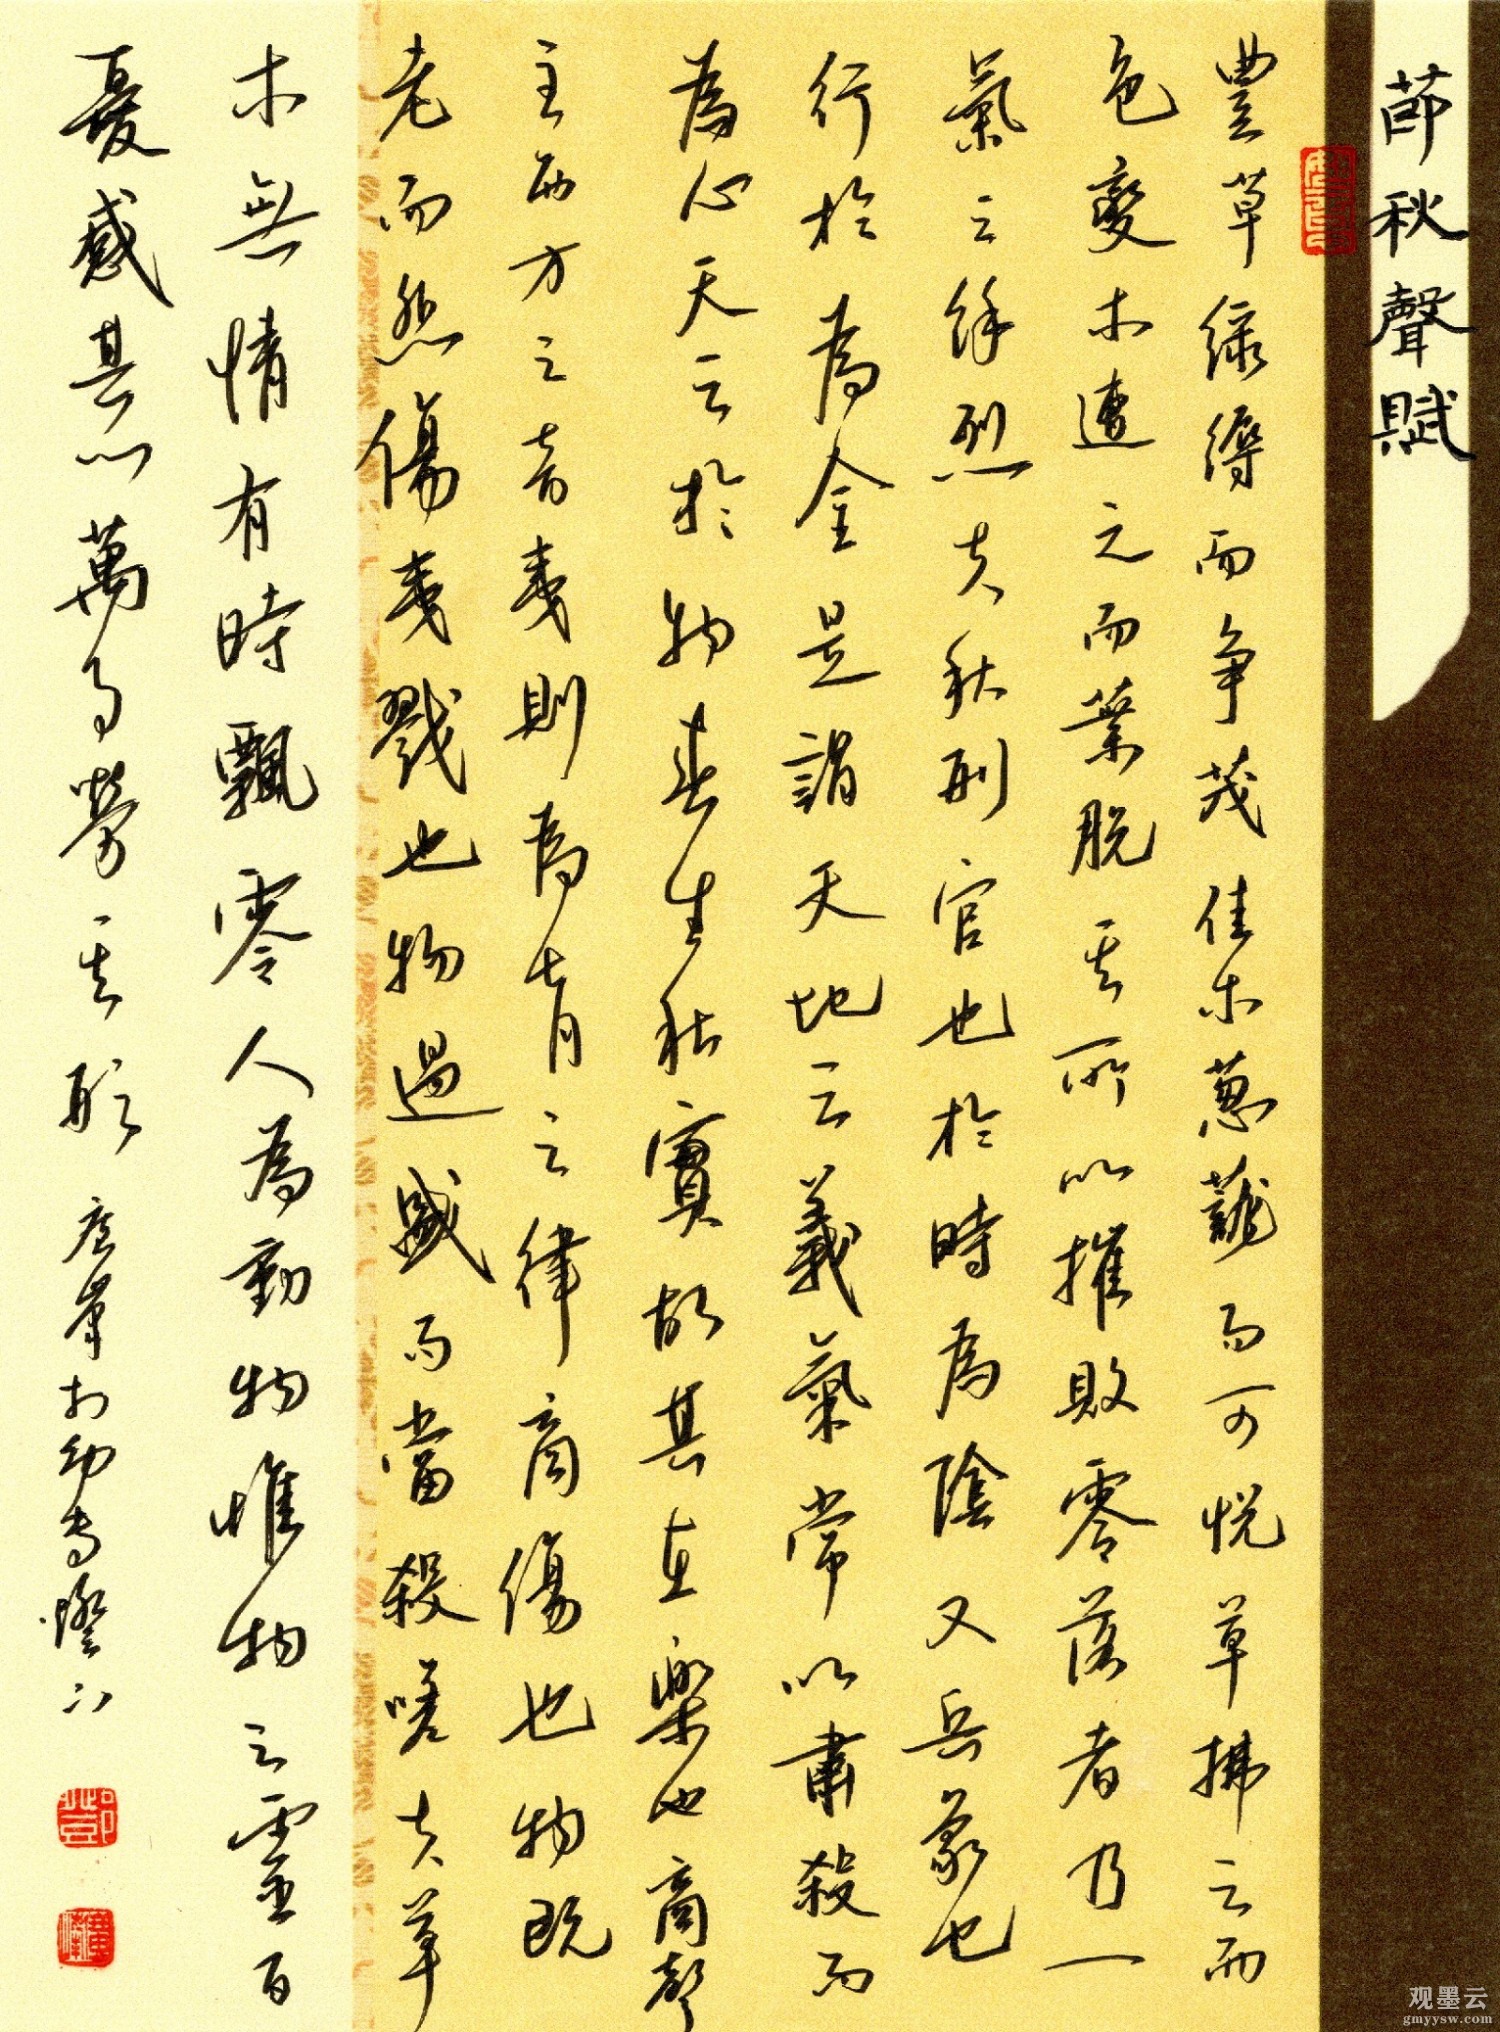 節秋聲賦
豐草綠縟而争茂佳木葱蘢而可悦草拂之而
色變木遭之而葉脱其所以摧敗零落者乃一
氣之餘烈夫秋刑官也於時為陰又兵象也
行於為金是謂天地之義氣常以肅殺而
為心天之於物春生秋實故其在樂也商聲
主西方之音夷則為七月之律商傷也物既
老而悲傷夷戮也物過盛而當殺嗟夫草
木無情有時飄零人為動物惟物之靈百
憂感其心萬事勞其形
观墨云
gmyysw.com